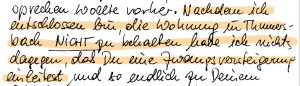 sprechen wollte vorher. Nachdem ich
entschlossen bin, die Wohnung in Thumers-
bach NICHT zu behalten habe ich nichts
dagegen, das Du eine Zwangsversteigerung
einleitest, und so endlich zu Deinem